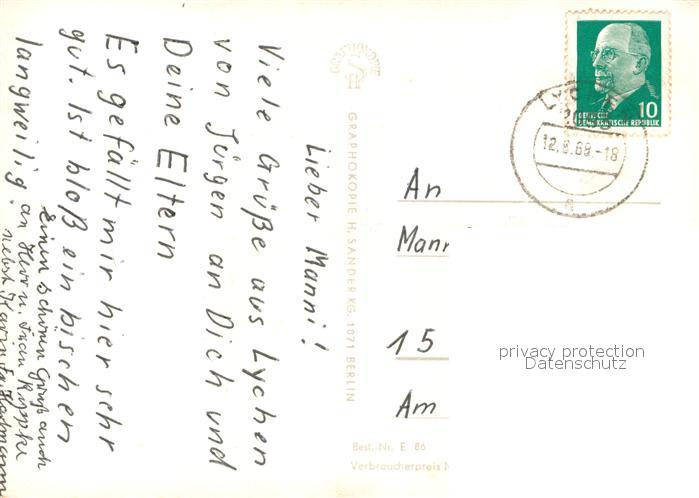 Lieber Manni!
Viele Grüße aus Lychen
von Jürgen an Dich und
Deine Eltern
Es gefällt mir hier sehr
gut. Ist bloß ein bischen
langweilig.
Einen schönen Gruß auch
an Herrn u. Frau
nebst
GRAPHOKOPIE
GRAPHOKOPIE H. SANDER KG. 1071 BERLIN
10
DEUTSCHE
DEMOKRATISCHE REPUBLIK
12.8.69.-18
a
An
Mann
15
Am
privacy protection
Datenschutz
Best.-Nr. E 86
Verbraucherpreis